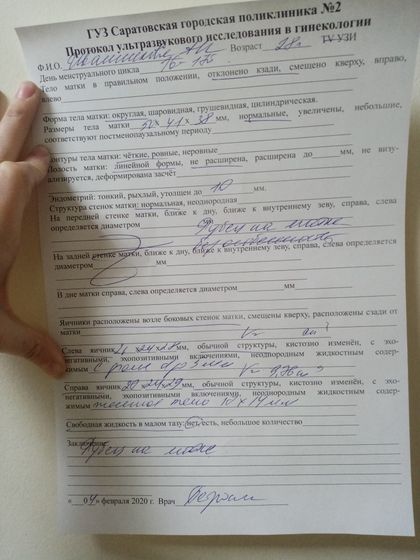 ГУЗ Саратовская городская поликлиника №2
Протокол ультразвукового исследования в гинекологии
Ф.И.О. Возраст 28 г TV УЗИ
День менструального цикла
Тело матки в правильном положении, отклонено кзади, смещено кверху, вправо,
влево
Форма тела матки: округлая, шаровидная, грушевидная, цилиндрическая.
Размеры тела матки 50 х 41 х 38 мм, нормальные, увеличены, небольшие,
соответствуют постменопаузальному периоду
Контуры тела матки: чёткие, ровные, неровные
Полость матки: линейной формы, не расширена, расширена до мм, не визу-
ализируется, деформирована засчёт
Эндометрий: тонкий, рыхлый, утолщен до 10 мм.
Структура стенок матки: нормальная, неоднородная
На передней стенке матки, ближе к дну, ближе к внутреннему зеву, справа, слева
определяется диаметром Рубец на матке
На задней стенке матки, ближе к дну, ближе к внутреннему зеву, справа, слева определяется
диаметром мм
В дне матки справа, слева определяется диаметром мм
Яичники расположены возле боковых стенок матки, смещены кверху, расположены сзади от
матки V= см³
Слева яичник мм, обычной структуры, кистозно изменён, с эхо-
негативными, эхопозитивными включениями, неоднородным жидкостным содер-
жимым
Справа яичник мм, обычной структуры, кистозно изменён, с эхо-
негативными, эхопозитивными включениями, неоднородным жидкостным содер-
жимым желтое тело мм
Свободная жидкость в малом тазу: нет, есть, небольшое количество
Заключение:
Рубец на матке
« 04 » февраля 2020 г. Врач